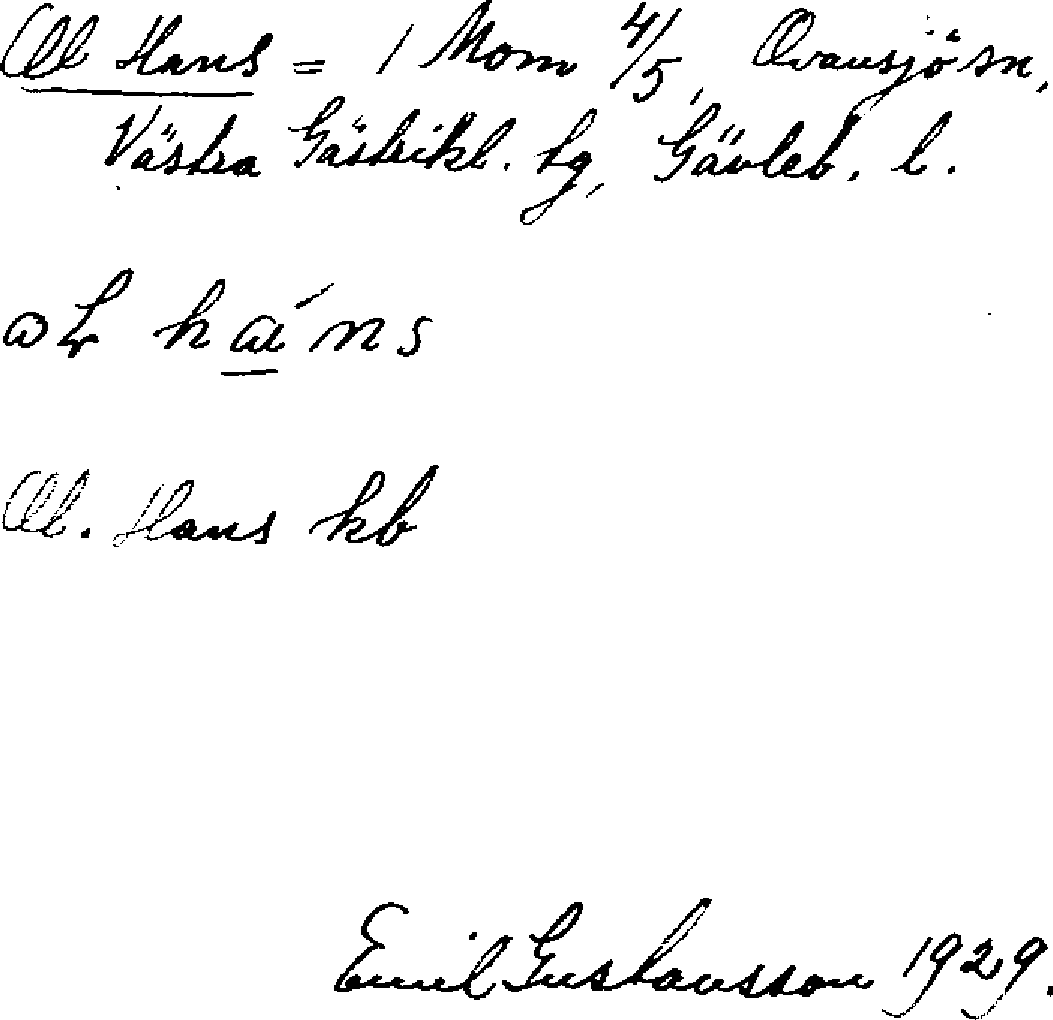 Oll Hans = 1 Mom 4/5, Ovansjö sn,
Västra Gästrikl. hg, Gävleb. l.
Oll. Hans kb
Emil Gustavsson 1929.